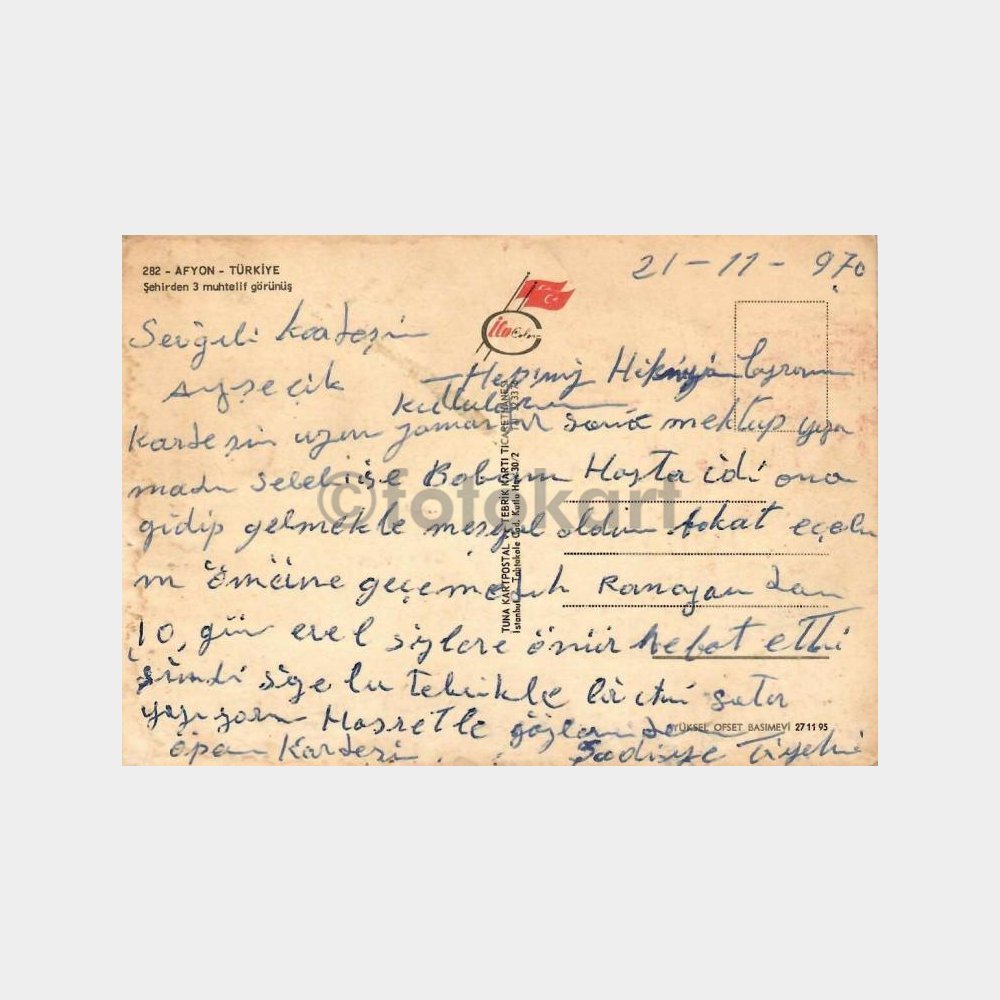 282 - AFYON - TÜRKİYE
Şehirden 3 muhtelif görünüş
21-11-970
Sevgili kardeşim
Ayşecik Hepiniz bayramı
kutlularım
kardeşim uzun zamandır sana mektup yaza
madım sebebi ise Babam Hasta idi ona
gidip gelmekle meşgul oldum fakat
m ömüüne geçemedik Ramazandan
10, gün evel sizlere ömür Vefat etti
şimdi size bu tebrikle bir iki satır
yazıyorum Hasretle gözlerinden
öpen Kardeşin Sadiye
TUNA KARTPOSTAL VE TEBRİK KARTI TİCARETHANESİ
İstanbul, Tahtakale Cad. Kutlu Han 30/2
©fotokart
YÜKSEL OFSET BASIMEVİ 27 11 95